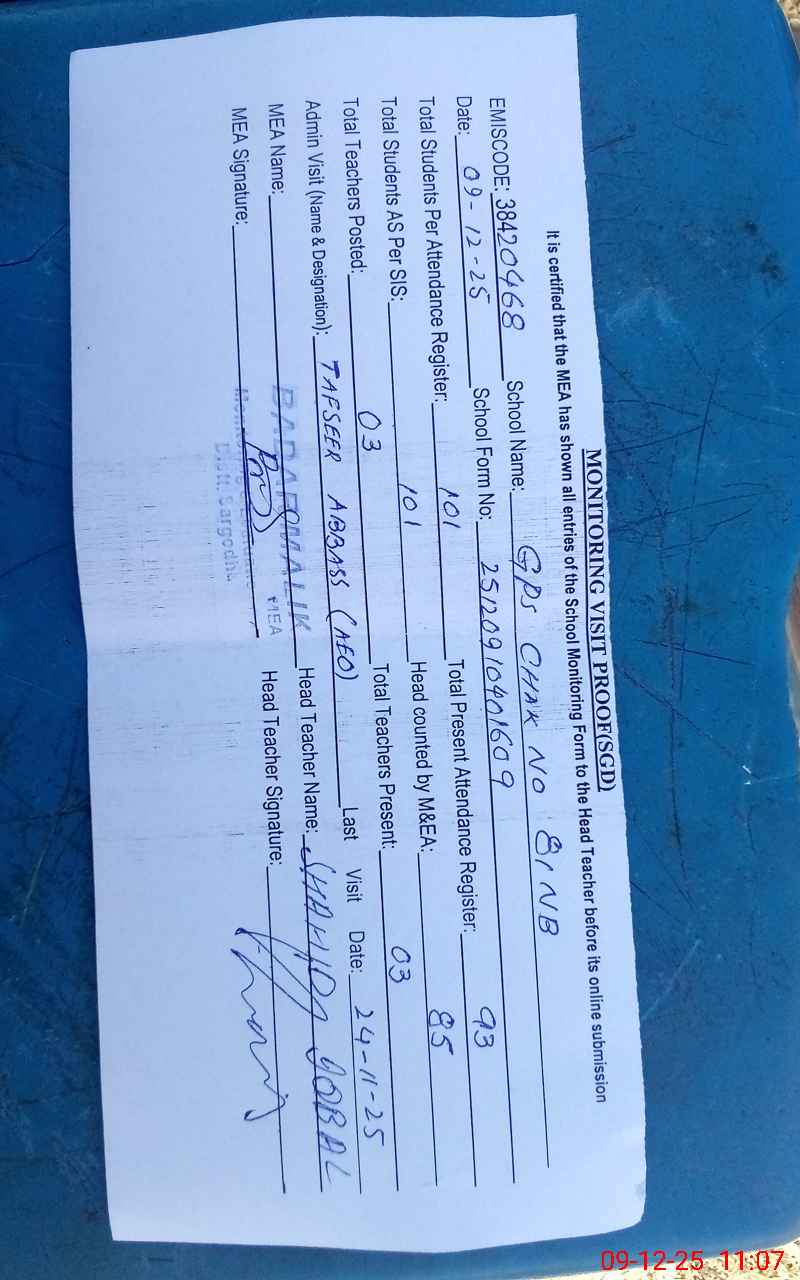 MONITORING VISIT PROOF(SGD)
It is certified that the MEA has shown all entries of the School Monitoring Form to the Head Teacher before its online submission
EMISCODE: 38420468 School Name: GPS CHAK NO 81 NB
Date: 09-12-25 School Form No: 25120910401609
Total Students Per Attendance Register: 101 Total Present Attendance Register: 93
Total Students AS Per SIS: 101 Head counted by M&EA: 85
Total Teachers Posted: 03 Total Teachers Present: 03
Admin Visit (Name & Designation): TAFSEER ABBASS (AEO) Last Visit Date: 24-11-25
MEA Name: MALIK Head Teacher Name: SHAHID IQBAL
MEA Signature: MEA Head Teacher Signature:
Distt. Sargodha
09-12-25 11:07